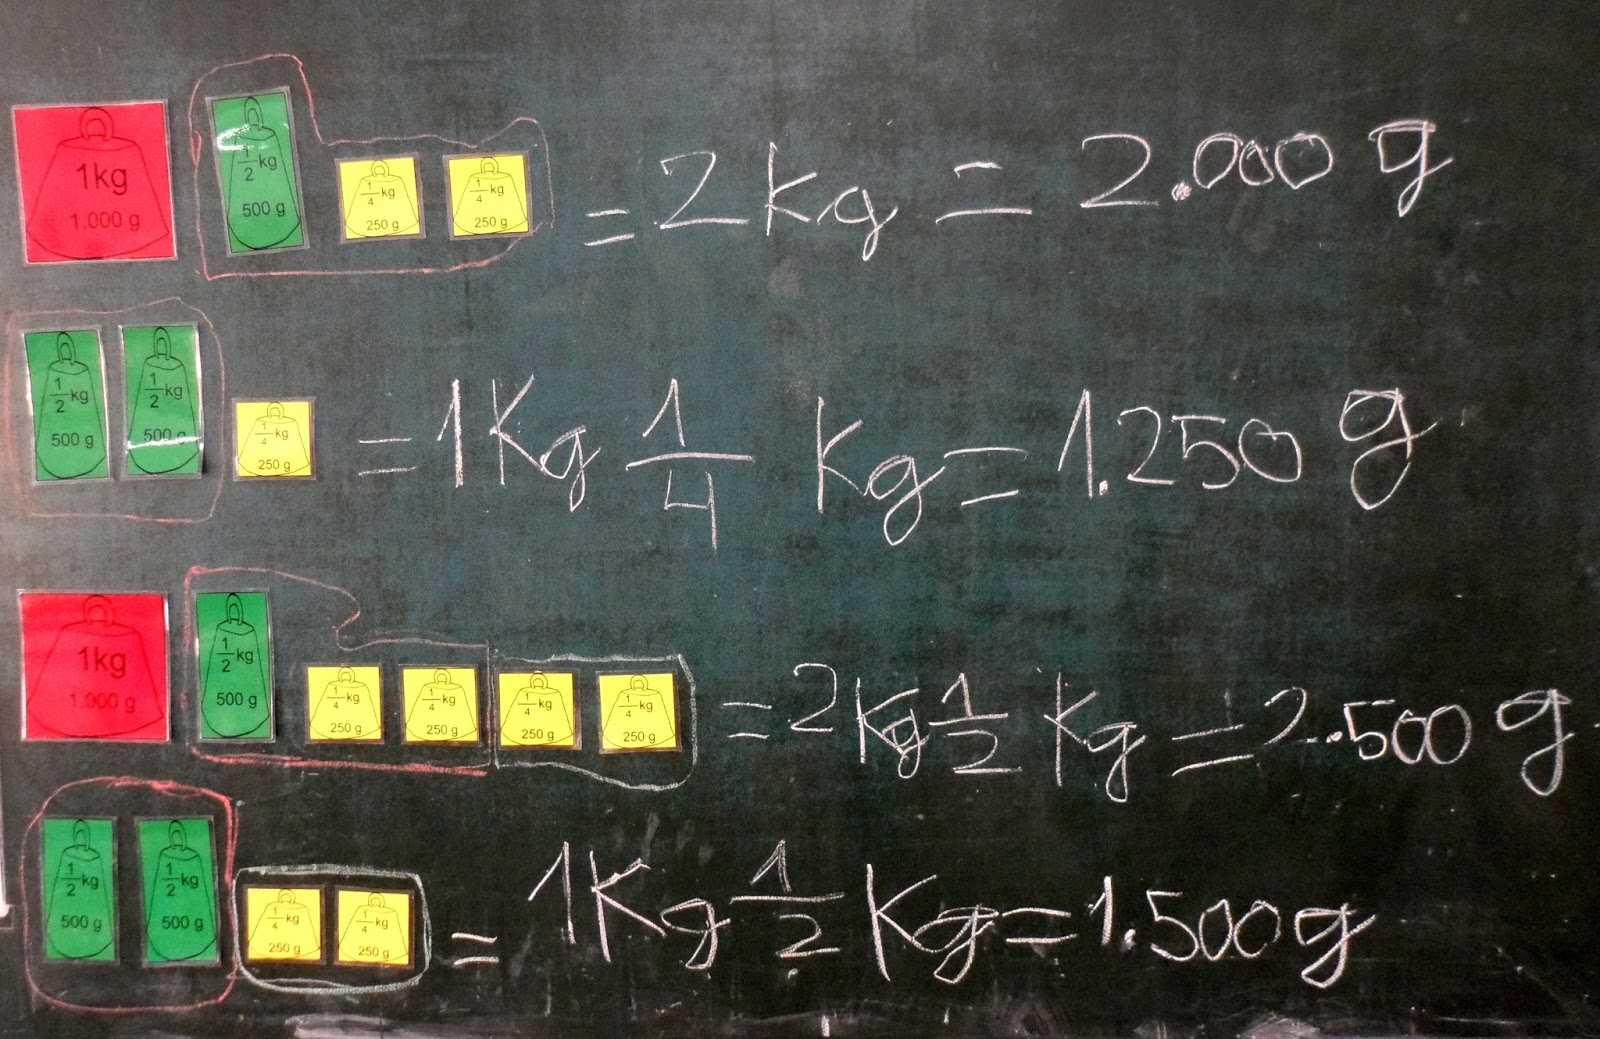 1kg 1.000 g 1/2 kg 500 g 1/4 kg 250 g 1/4 kg 250 g = 2 kg = 2.000 g
1/2 kg 500 g 1/2 kg 500 g 1/4 kg 250 g = 1Kg 1/4 Kg = 1.250 g
1kg 1.000 g 1/2 kg 500 g 1/4 kg 250 g 1/4 kg 250 g 1/4 kg 250 g 1/4 kg 250 g = 2 Kg 1/2 Kg = 2.500 g
1/2 kg 500 g 1/2 kg 500 g 1/4 kg 250 g 1/4 kg 250 g = 1Kg 1/2 Kg = 1.500 g